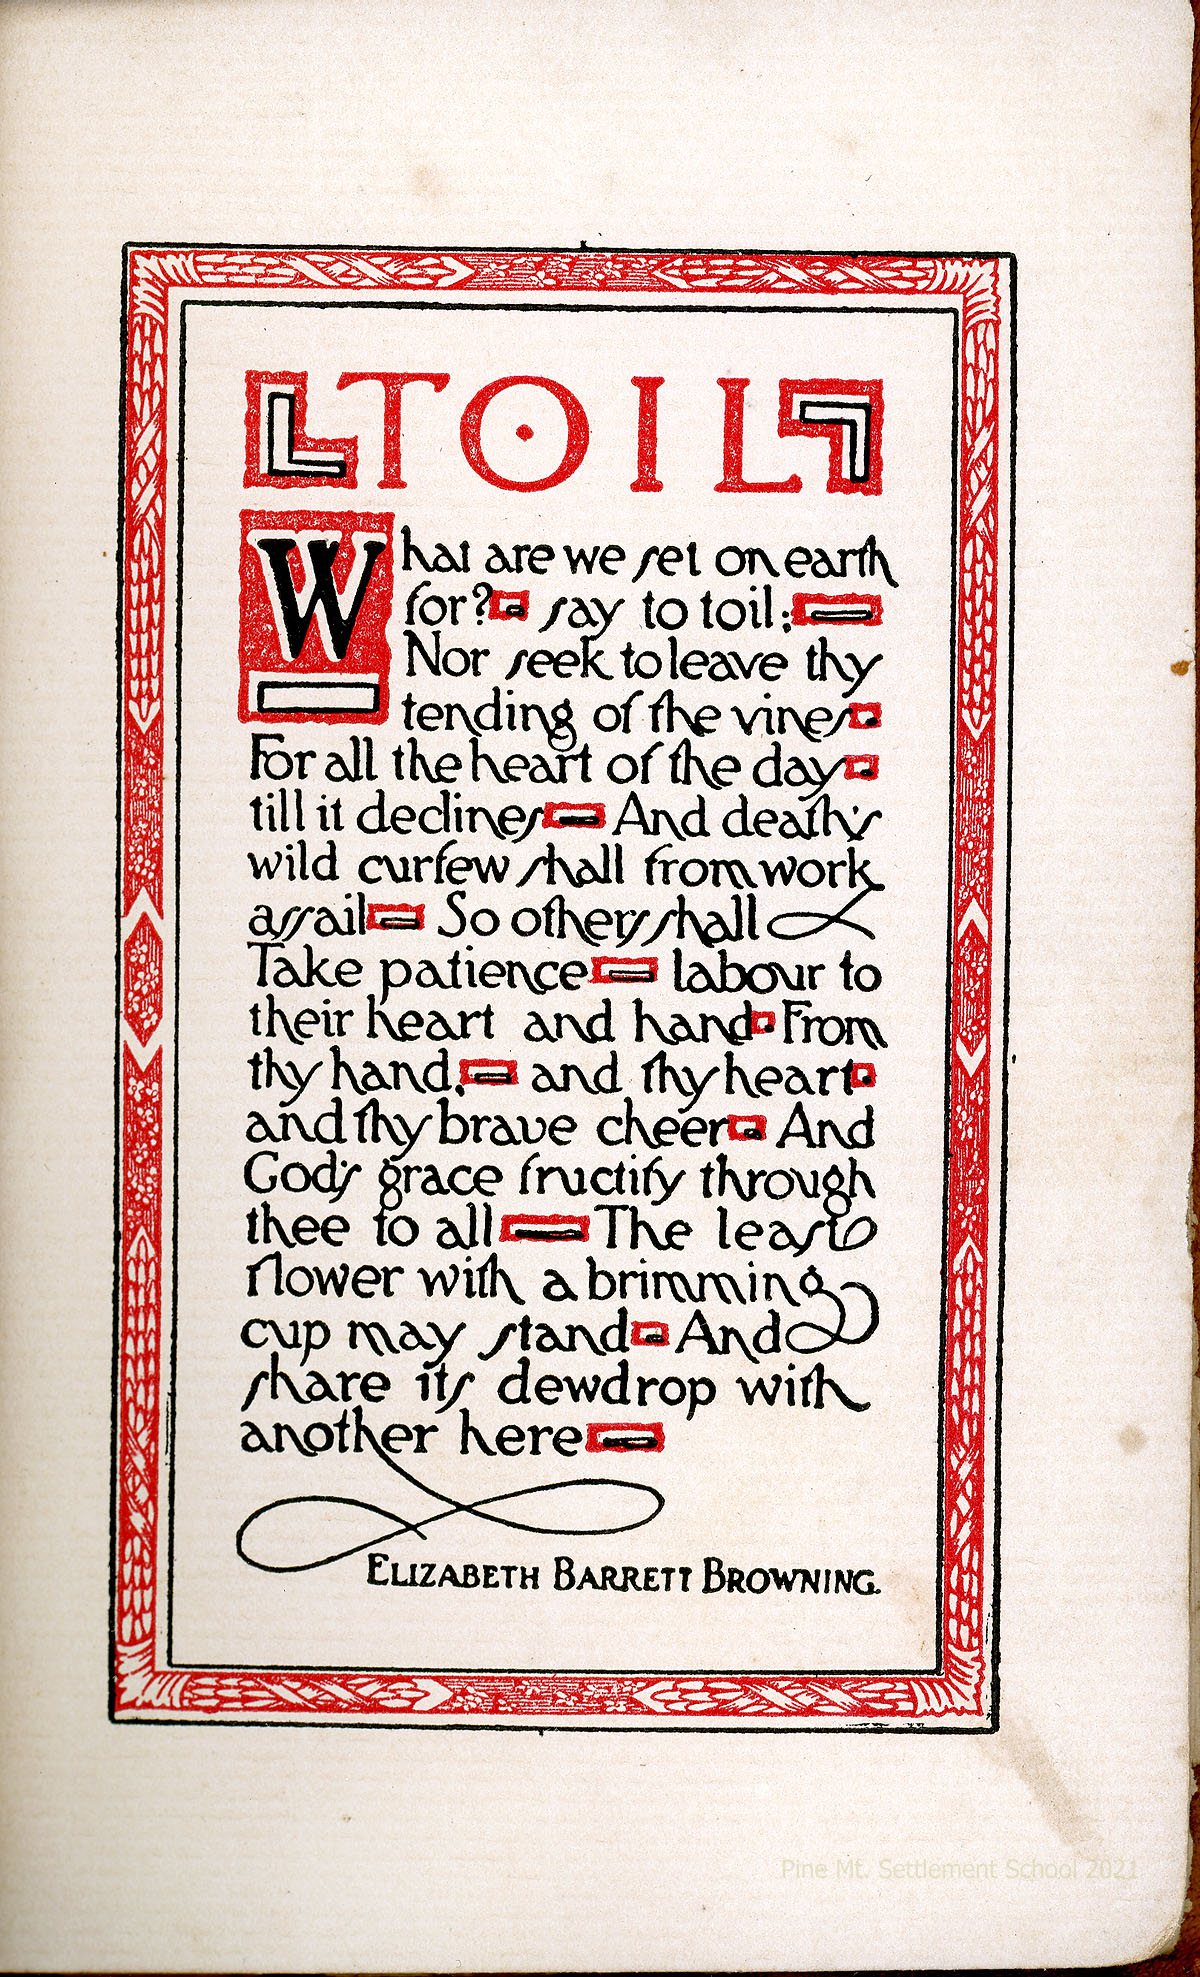 TOIL
What are we set on earth
for? say to toil;
Nor seek to leave thy
tending of the vines
For all the heart of the day
till it declines And death's
wild curfew shall from work
assail So others shall
Take patience labour to
their heart and hand From
thy hand, and thy heart
and thy brave cheer And
God's grace fructify through
thee to all The least
flower with a brimming
cup may stand And
share its dewdrop with
another here
ELIZABETH BARRETT BROWNING.
Pine Mt. Settlement School 2021